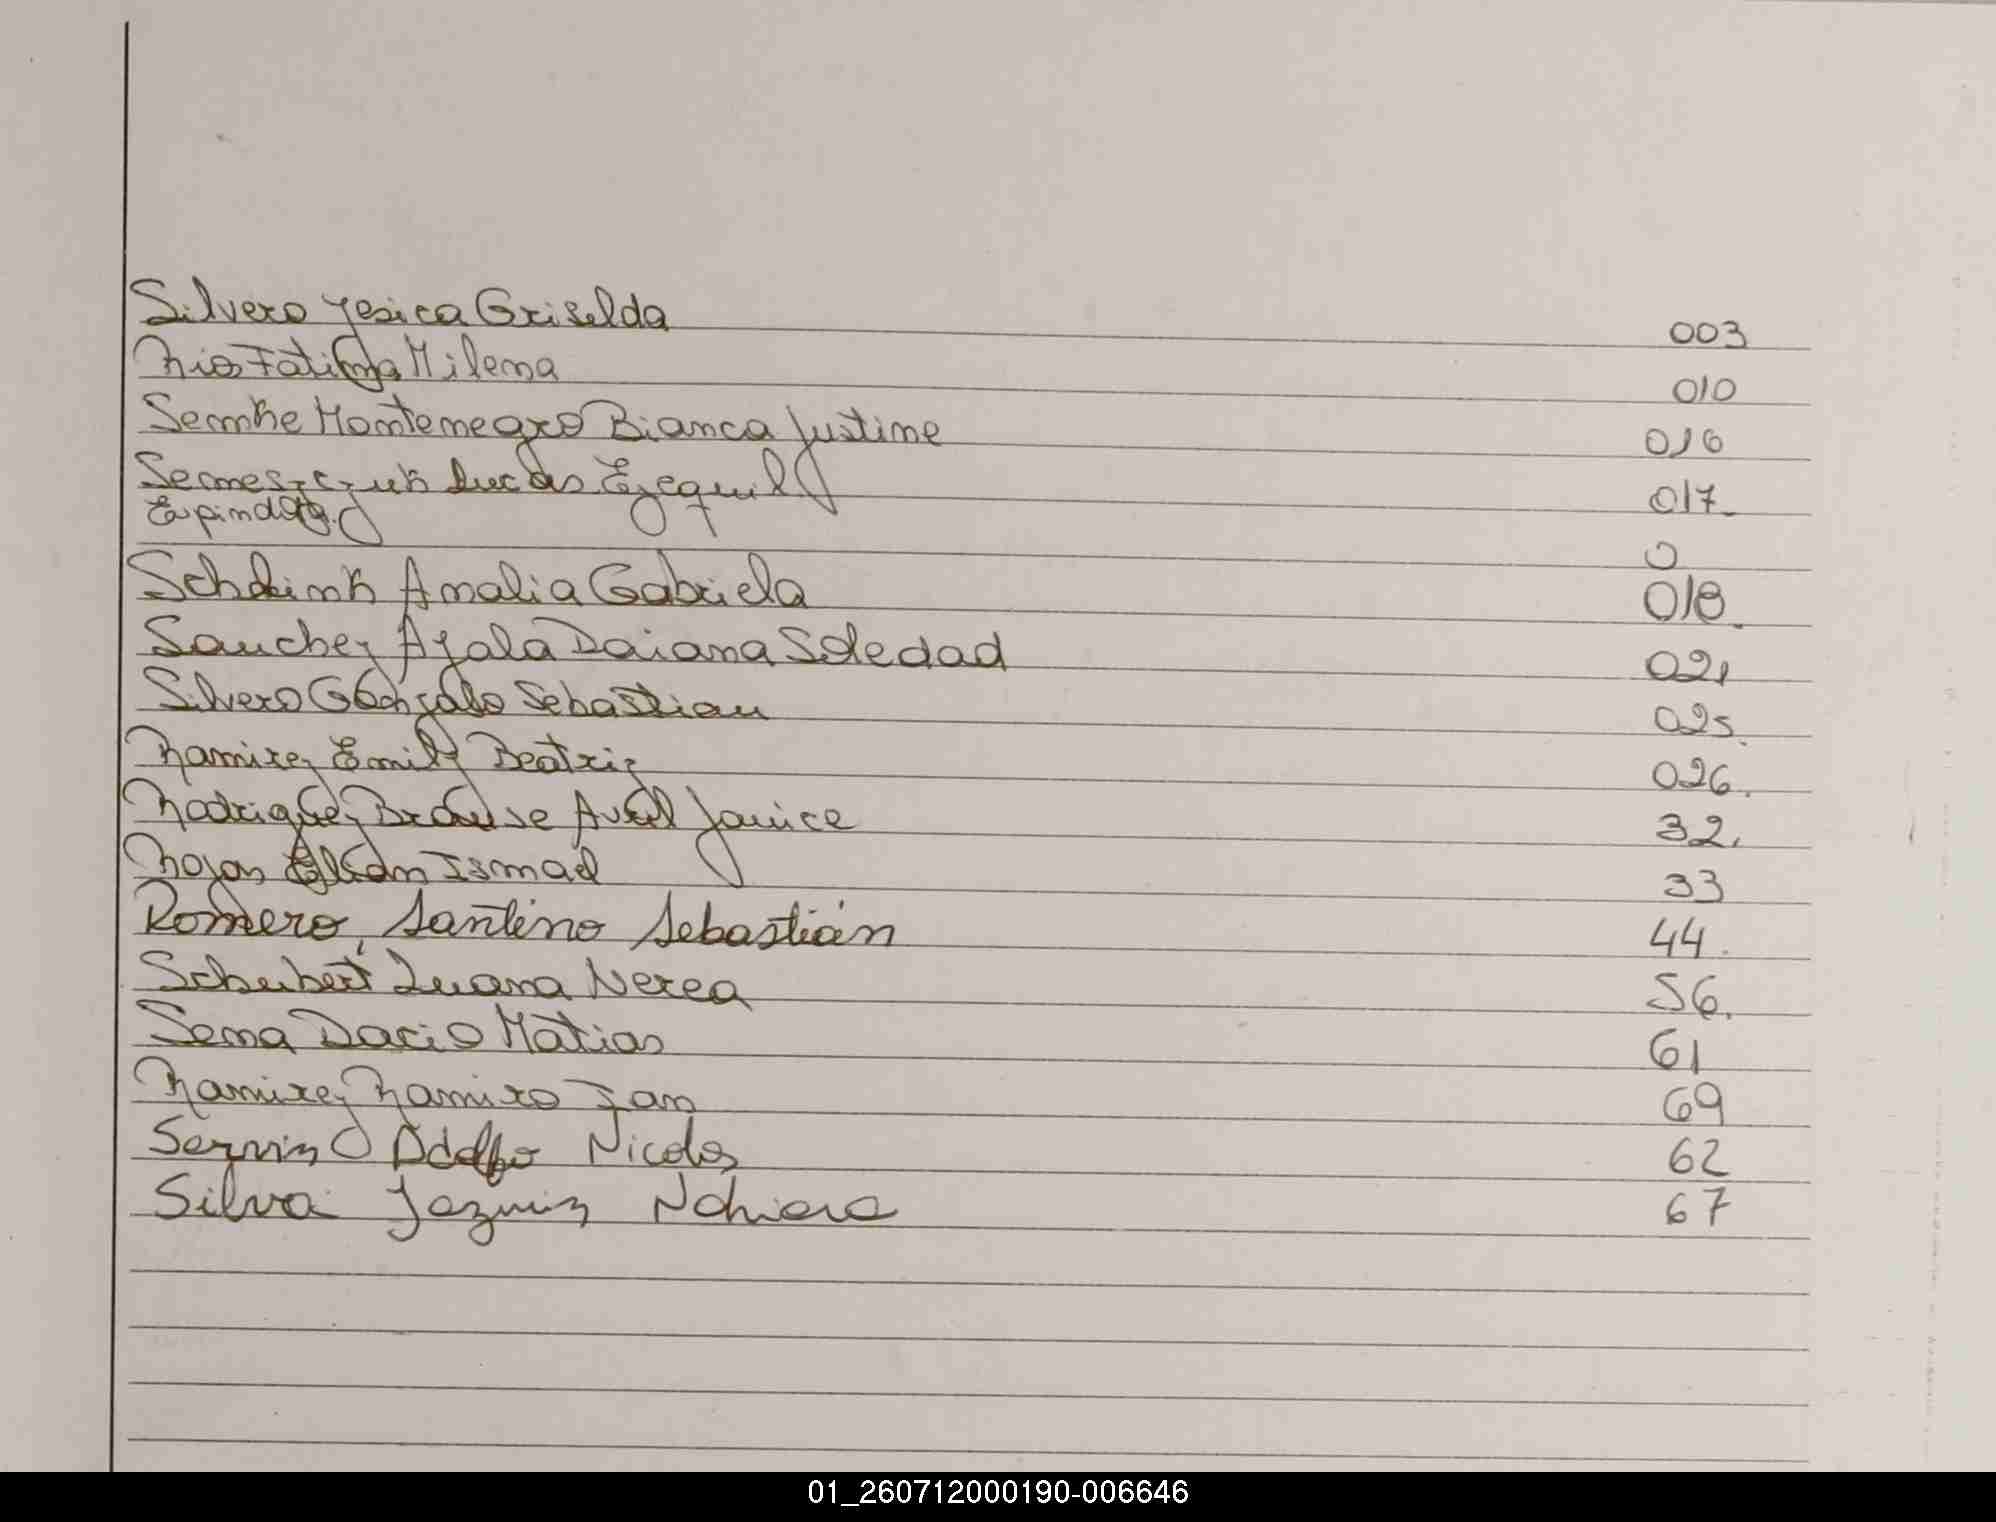 Silvero Yesica Griselda 003
Rios Fatima Milena 010
Semhe Montenegro Bianca Justine 016
Semeszczuk Lucas Ezequil 017.
Espindola. 0
Scheink Amalia Gabriela 018.
Sanchez Ayala Daiana Soledad 021
Silvero Gonzalo Sebastian 025.
Ramirez Emily Beatriz 026.
Rodriguez Brousse Avril Janice 32.
Rojas Ismael 33
Romero, Santino Sebastián 44.
Schubert Luana Nerea 56.
Sena Dacio Matias 61
Ramirez Ramiro Ian 69
Servin Adolfo Nicolas 62
Silva Jazmin Nahiara 67
01_260712000190-006646